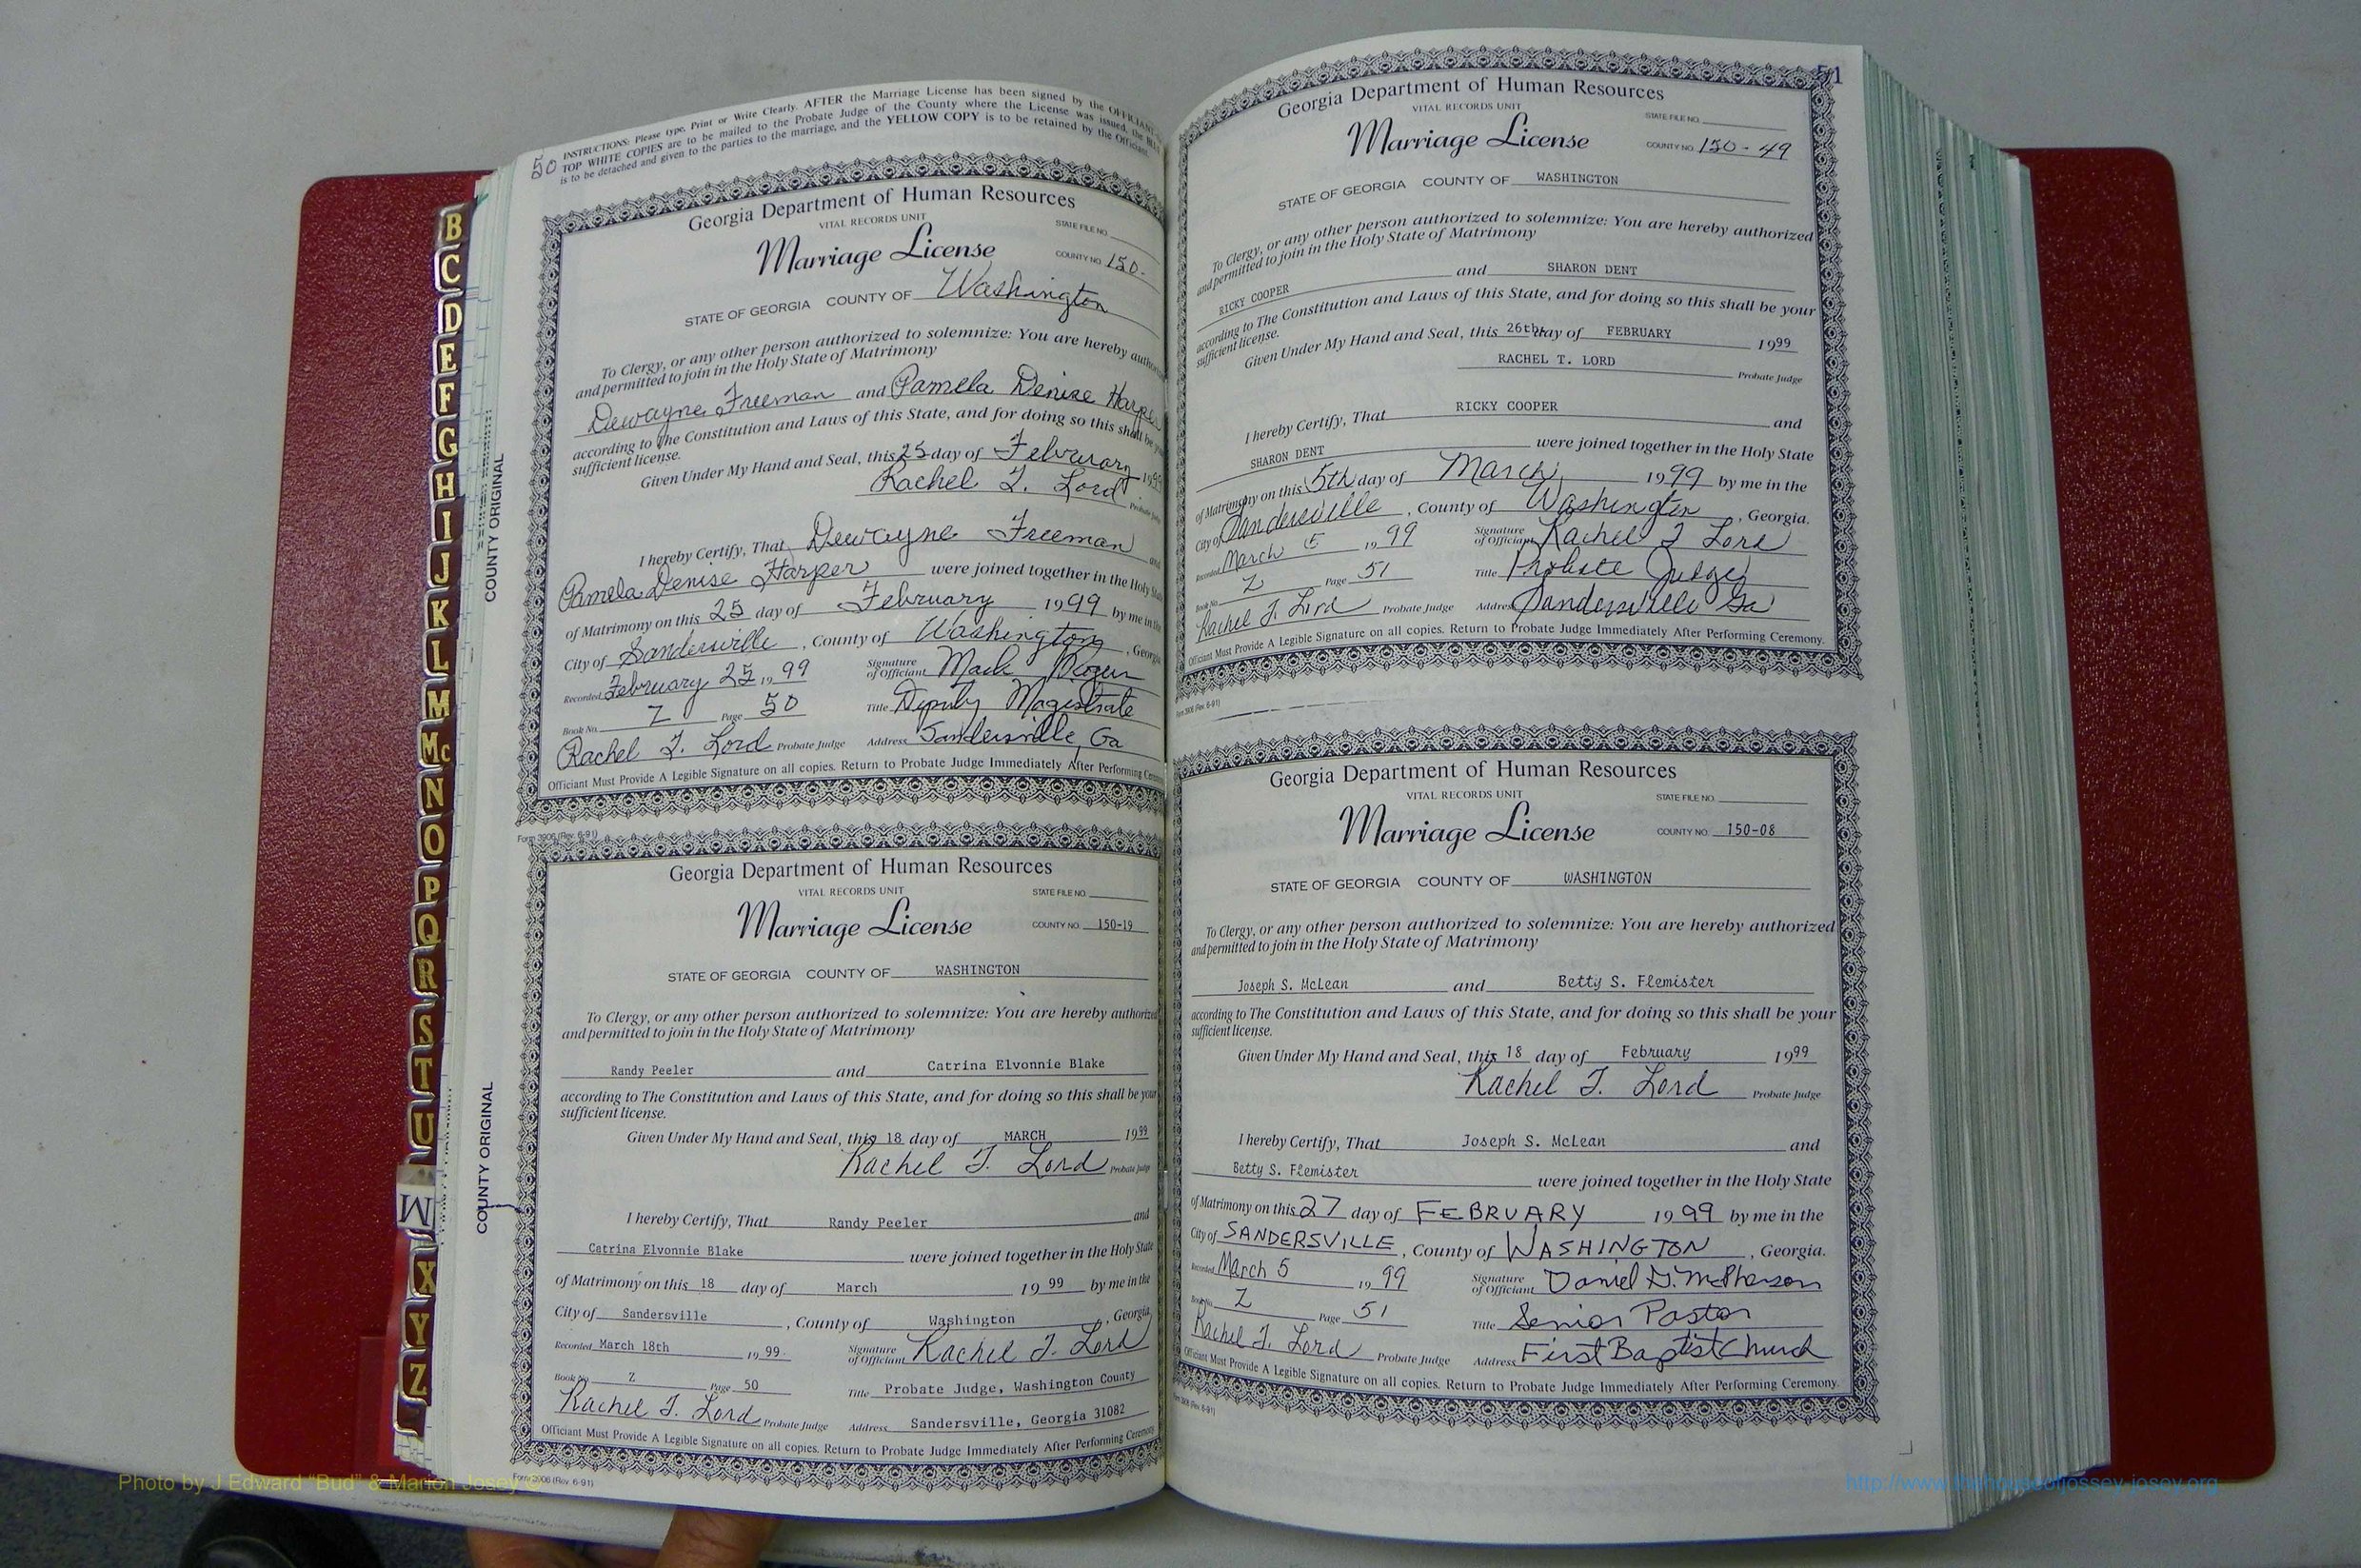 50
INSTRUCTIONS: Please type, Print or Write Clearly. AFTER the Marriage License has been signed by the OFFICIANT
TOP WHITE COPIES are to be mailed to the Probate Judge of the County where the License was issued, the
is to be detached and given to the parties to the marriage, and the YELLOW COPY is to be retained by the Officiant.
COUNTY ORIGINAL
Georgia Department of Human Resources
VITAL RECORDS UNIT
STATE FILE NO.
Marriage License
COUNTY NO. 150-
STATE OF GEORGIA COUNTY OF Washington
To Clergy, or any other person authorized to solemnize: You are hereby
and permitted to join in the Holy State of Matrimony
Dewayne Freeman and Pamela Denise Harper
according to The Constitution and Laws of this State, and for doing so this shall be
sufficient license.
Given Under My Hand and Seal, this 25 day of February 1999
Rachel T. Lord
I hereby Certify, That Dewayne Freeman and
Pamela Denise Harper were joined together in the Holy State
of Matrimony on this 25 day of February 1999 by me in the
City of Sandersville, County of Washington, Georgia
Recorded February 25 1999
Signature of Officiant Mack
Book No. Z Page 50
Title Deputy Magistrate
Rachel T. Lord Probate Judge Address Sandersville, Ga
Officiant Must Provide A Legible Signature on all copies. Return to Probate Judge Immediately After Performing
Form 3906 (Rev. 6-91)
COUNTY ORIGINAL
Georgia Department of Human Resources
VITAL RECORDS UNIT
STATE FILE NO.
Marriage License
COUNTY NO. 150-19
STATE OF GEORGIA COUNTY OF WASHINGTON
To Clergy, or any other person authorized to solemnize: You are hereby authorized
and permitted to join in the Holy State of Matrimony
Randy Peeler and Catrina Elvonnie Blake
according to The Constitution and Laws of this State, and for doing so this shall be your
sufficient license.
Given Under My Hand and Seal, this 18 day of MARCH 1999
Rachel T. Lord Probate Judge
I hereby Certify, That Randy Peeler and
Catrina Elvonnie Blake were joined together in the Holy State
of Matrimony on this 18 day of March 1999 by me in the
City of Sandersville, County of Washington, Georgia.
Recorded March 18th 1999.
Signature of Officiant Rachel T. Lord
Book No. Z Page 50
Title Probate Judge, Washington County
Rachel T. Lord Probate Judge Address Sandersville, Georgia 31082
Officiant Must Provide A Legible Signature on all copies. Return to Probate Judge Immediately After Performing Ceremony.
Form 3906 (Rev. 6-91)
51
Georgia Department of Human Resources
VITAL RECORDS UNIT
STATE FILE NO.
Marriage License
COUNTY NO. 150-49
STATE OF GEORGIA COUNTY OF WASHINGTON
To Clergy, or any other person authorized to solemnize: You are hereby authorized
and permitted to join in the Holy State of Matrimony
RICKY COOPER and SHARON DENT
according to The Constitution and Laws of this State, and for doing so this shall be your
sufficient license.
Given Under My Hand and Seal, this 26th day of FEBRUARY 1999
RACHEL T. LORD Probate Judge
I hereby Certify, That RICKY COOPER and
SHARON DENT were joined together in the Holy State
of Matrimony on this 5th day of March 1999 by me in the
City of Sandersville, County of Washington, Georgia.
Recorded March 5 1999
Signature of Officiant Rachel T Lord
Book No. Z Page 51
Title Probate Judge
Rachel T. Lord Probate Judge Address Sandersville Ga
Officiant Must Provide A Legible Signature on all copies. Return to Probate Judge Immediately After Performing Ceremony.
Form 3906 (Rev. 6-91)
Georgia Department of Human Resources
VITAL RECORDS UNIT
STATE FILE NO.
Marriage License
COUNTY NO. 150-08
STATE OF GEORGIA COUNTY OF WASHINGTON
To Clergy, or any other person authorized to solemnize: You are hereby authorized
and permitted to join in the Holy State of Matrimony
Joseph S. McLean and Betty S. Flemister
according to The Constitution and Laws of this State, and for doing so this shall be your
sufficient license.
Given Under My Hand and Seal, this 18 day of February 1999
Rachel T. Lord Probate Judge
I hereby Certify, That Joseph S. McLean and
Betty S. Flemister were joined together in the Holy State
of Matrimony on this 27 day of FEBRUARY 1999 by me in the
City of SANDERSVILLE, County of WASHINGTON, Georgia.
Recorded March 5 1999
Signature of Officiant Daniel G. McPherson
Book No. Z Page 51
Title Senior Pastor
Rachel T. Lord Probate Judge Address First Baptist Church
Officiant Must Provide A Legible Signature on all copies. Return to Probate Judge Immediately After Performing Ceremony.
Form 3906 (Rev. 6-91)
B
C
D
E
F
G
H
I
J
K
L
M
Mc
N
O
P
Q
R
S
T
U
W
X
Y
Z
Photo by J Edward “Bud” & Marion Josey ©
http://www.thehouseofjossey-josey.org